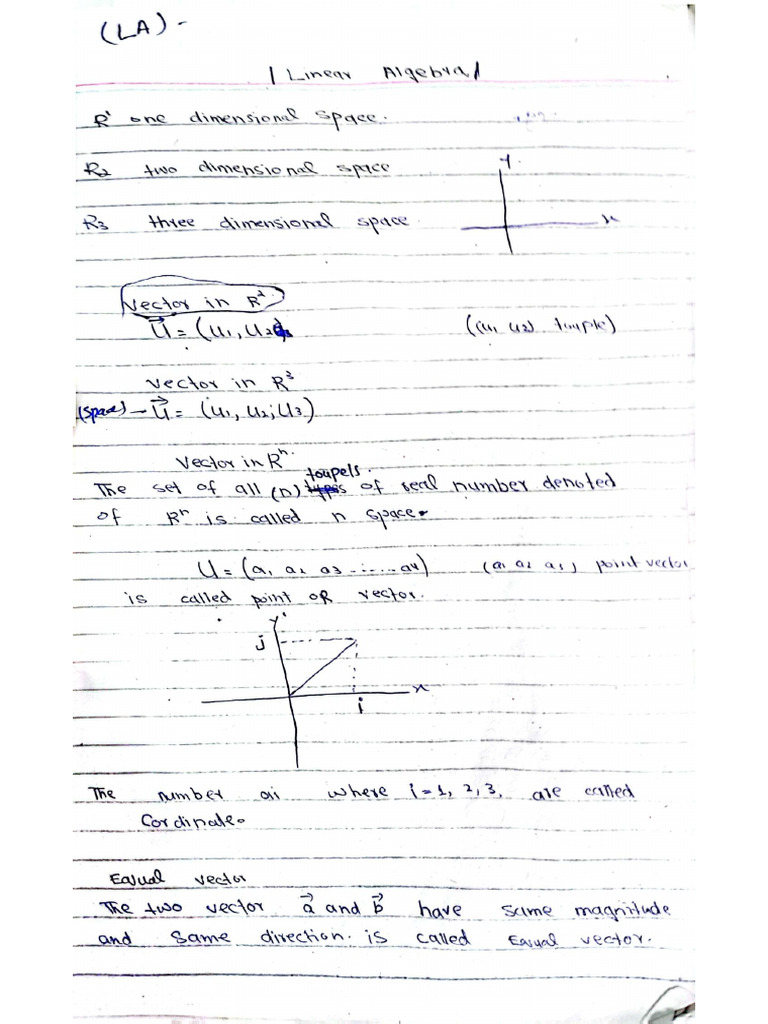 (LA) -
| Linear Algebra |
R¹ one dimensional space.
R2 two dimensional space
y
R3 three dimensional space
x
Vector in R²
u⃗ = (u1, u2)
((u1 u2) touple)
Vector in R³
(space) - u⃗ = (u1, u2, u3)
Vector in Rⁿ.
toupels.
The set of all (n) of real number denoted
of Rⁿ is called n space.
U = (a1 a2 a3 ........ a4) (a1 a2 a3) point vector
is called point OR vector.
y
j
x
i
The number ai where i = 1, 2, 3, are called
Cordinate.
Equal vector
The two vector a⃗ and b⃗ have same magnitude
and same direction. is called Equal vector.